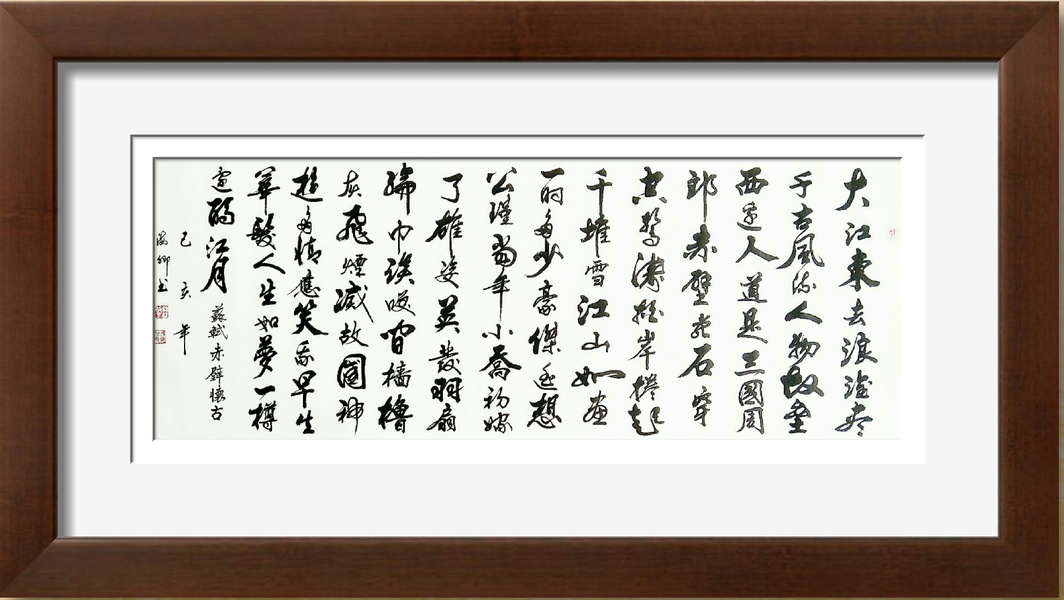 大江東去浪淘盡
千古風流人物故壘
西邊人道是三國周
郎赤壁亂石穿
空驚濤拍岸捲起
千堆雪江山如畫
一時多少豪傑遙想
公瑾當年小喬初嫁
了雄姿英發羽扇
綸巾談咲間檣櫓
灰飛煙滅故國神
遊多情應笑我早生
華髮人生如夢一樽
還酹江月 蘇軾赤壁懷古
己亥年
卿书